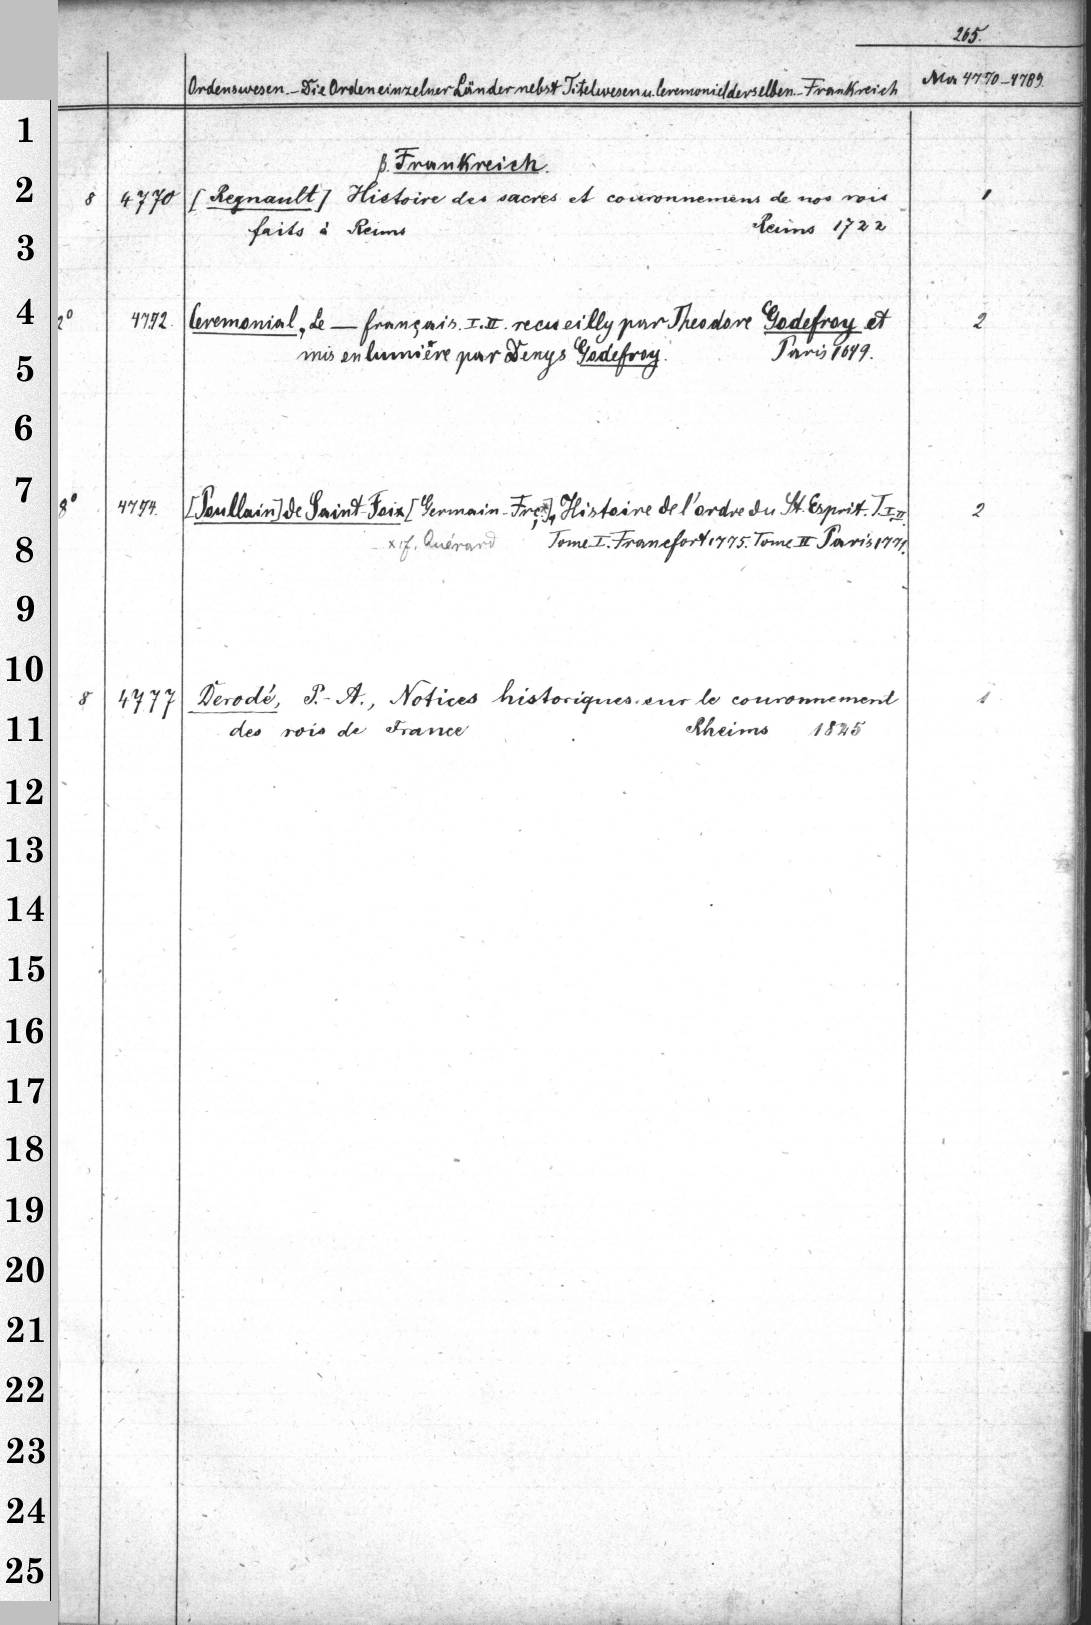 265.
Ordenswesen.–Die Orden einzelner Länder nebst Titelwesen u. Ceremoniel derselben.–Frankreich Ma 4770–4789
β. Frankreich.
8 4770 [Regnault] Histoire des sacres et couronnemens de nos rois 1
faits à Reims Reims 1722
2° 4772. Ceremonial, Le — français. I.II. recueilly par Theodore Godefroy et 2
mis en lumière par Denys Godefroy. Paris 1649.
8° 4774. [Poullain] de Saint-Foix [Germain-Frç.x], Histoire de l'ordre du St. Esprit. T.I.II. 2
x cf. Quérard Tome I. Francfort 1775. Tome II Paris 1771.
8 4777 Derodé, P.-A., Notices historiques sur le couronnement 1
des rois de France Rheims 1825
1
2
3
4
5
6
7
8
9
10
11
12
13
14
15
16
17
18
19
20
21
22
23
24
25